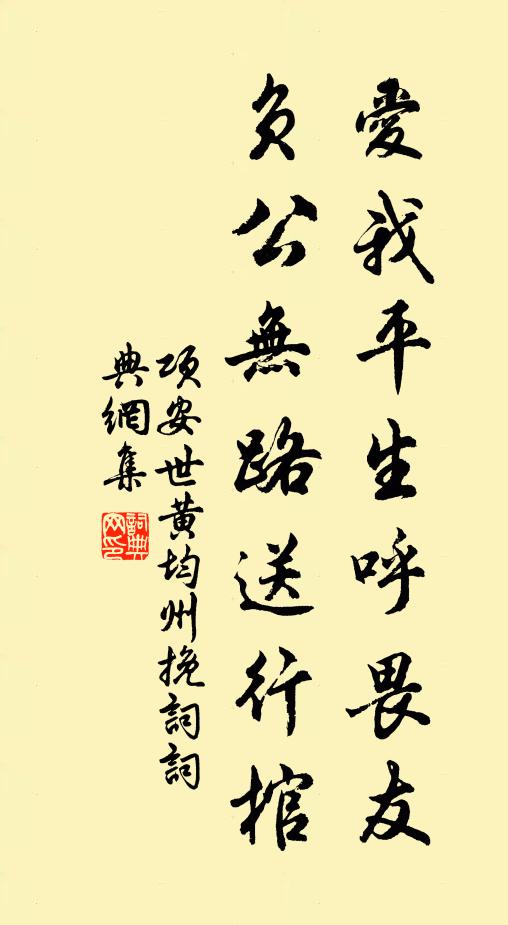 愛我平生呼畏友
負公無路送行棺
項安世黃均州挽詞詞
典網集
詞典
网印